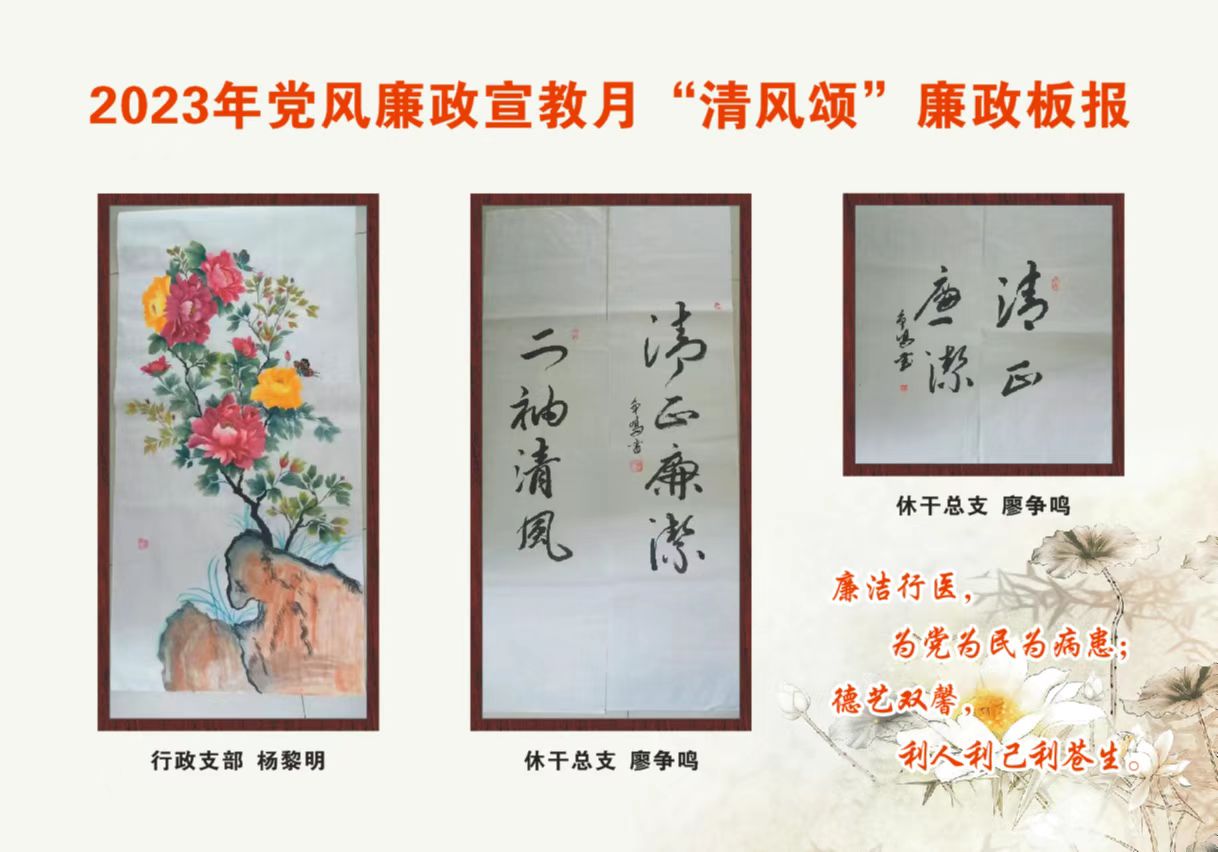 2023年党风廉政宣教月“清风颂”廉政板报
清正廉潔
争鳴書
二袖清風
清正
廉潔
争鳴書
行政支部 杨黎明
休干总支 廖争鸣
休干总支 廖争鸣
廉洁行医，
为党为民为病患；
德艺双馨，
利人利己利苍生。